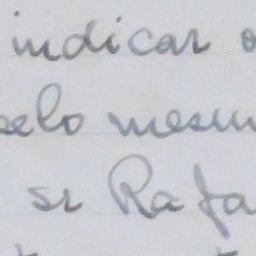 indicar o
pelo mesm
sr Rafa